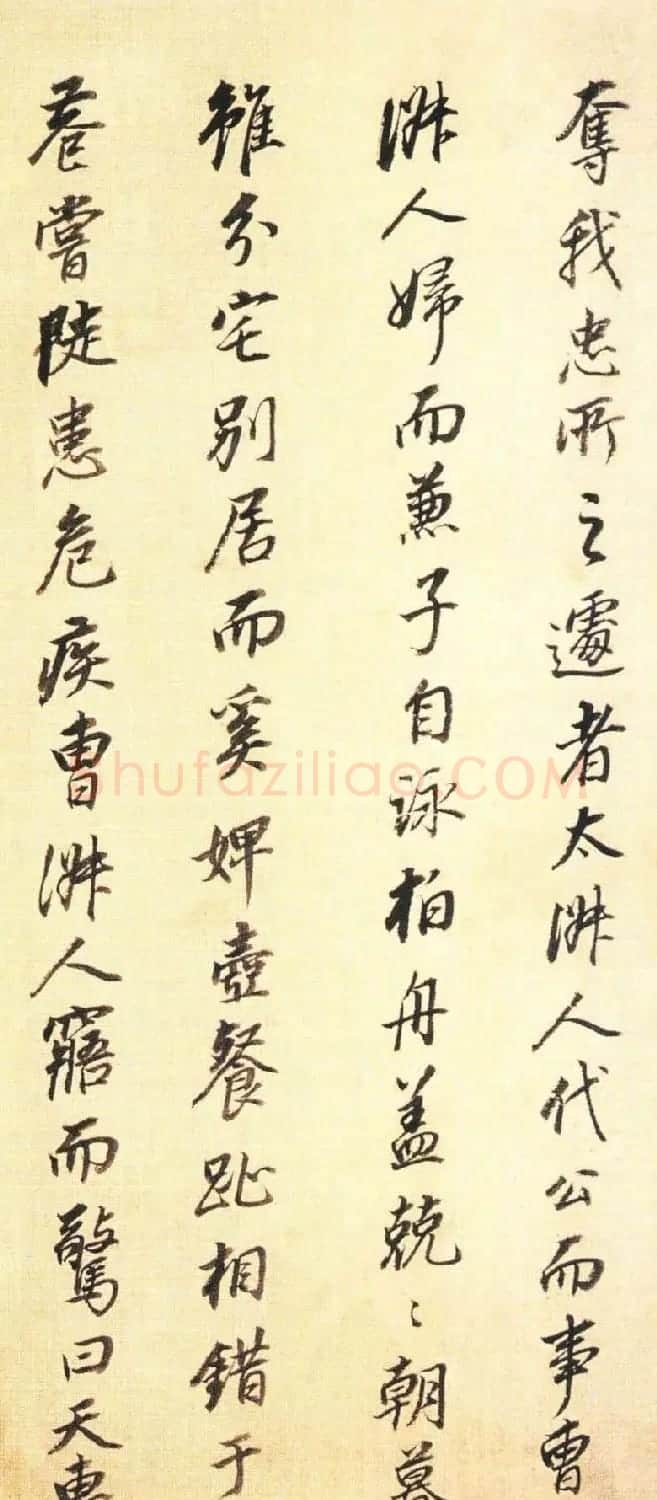 奪我忠所之遽者太淑人代公而事曹
淑人婦而兼子自詠柏舟蓋兢〻朝暮
雖分宅別居而奚婢壺餐趾相錯于
巷嘗陡患危疾曹淑人寤而驚曰天
shufaziliao.COM